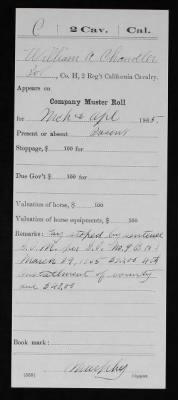 C | 2 Cav. | Cal.
William A Chandler
, Co. H, 2 Reg't California Cavalry.
Appears on
Company Muster Roll
for Mch & Apl, 1865.
Present or absent Present
Stoppage, $ 100 for
Due Gov't $ 100 for
Valuation of horse, $ 100
Valuation of horse equipments, $ 100
Remarks: Pay stopped by sentence
G.C.M. per S.O. No.
March 29, 1865 4th
installment of bounty
due $40.00
Book mark:
Murphy
(358) Copyist.